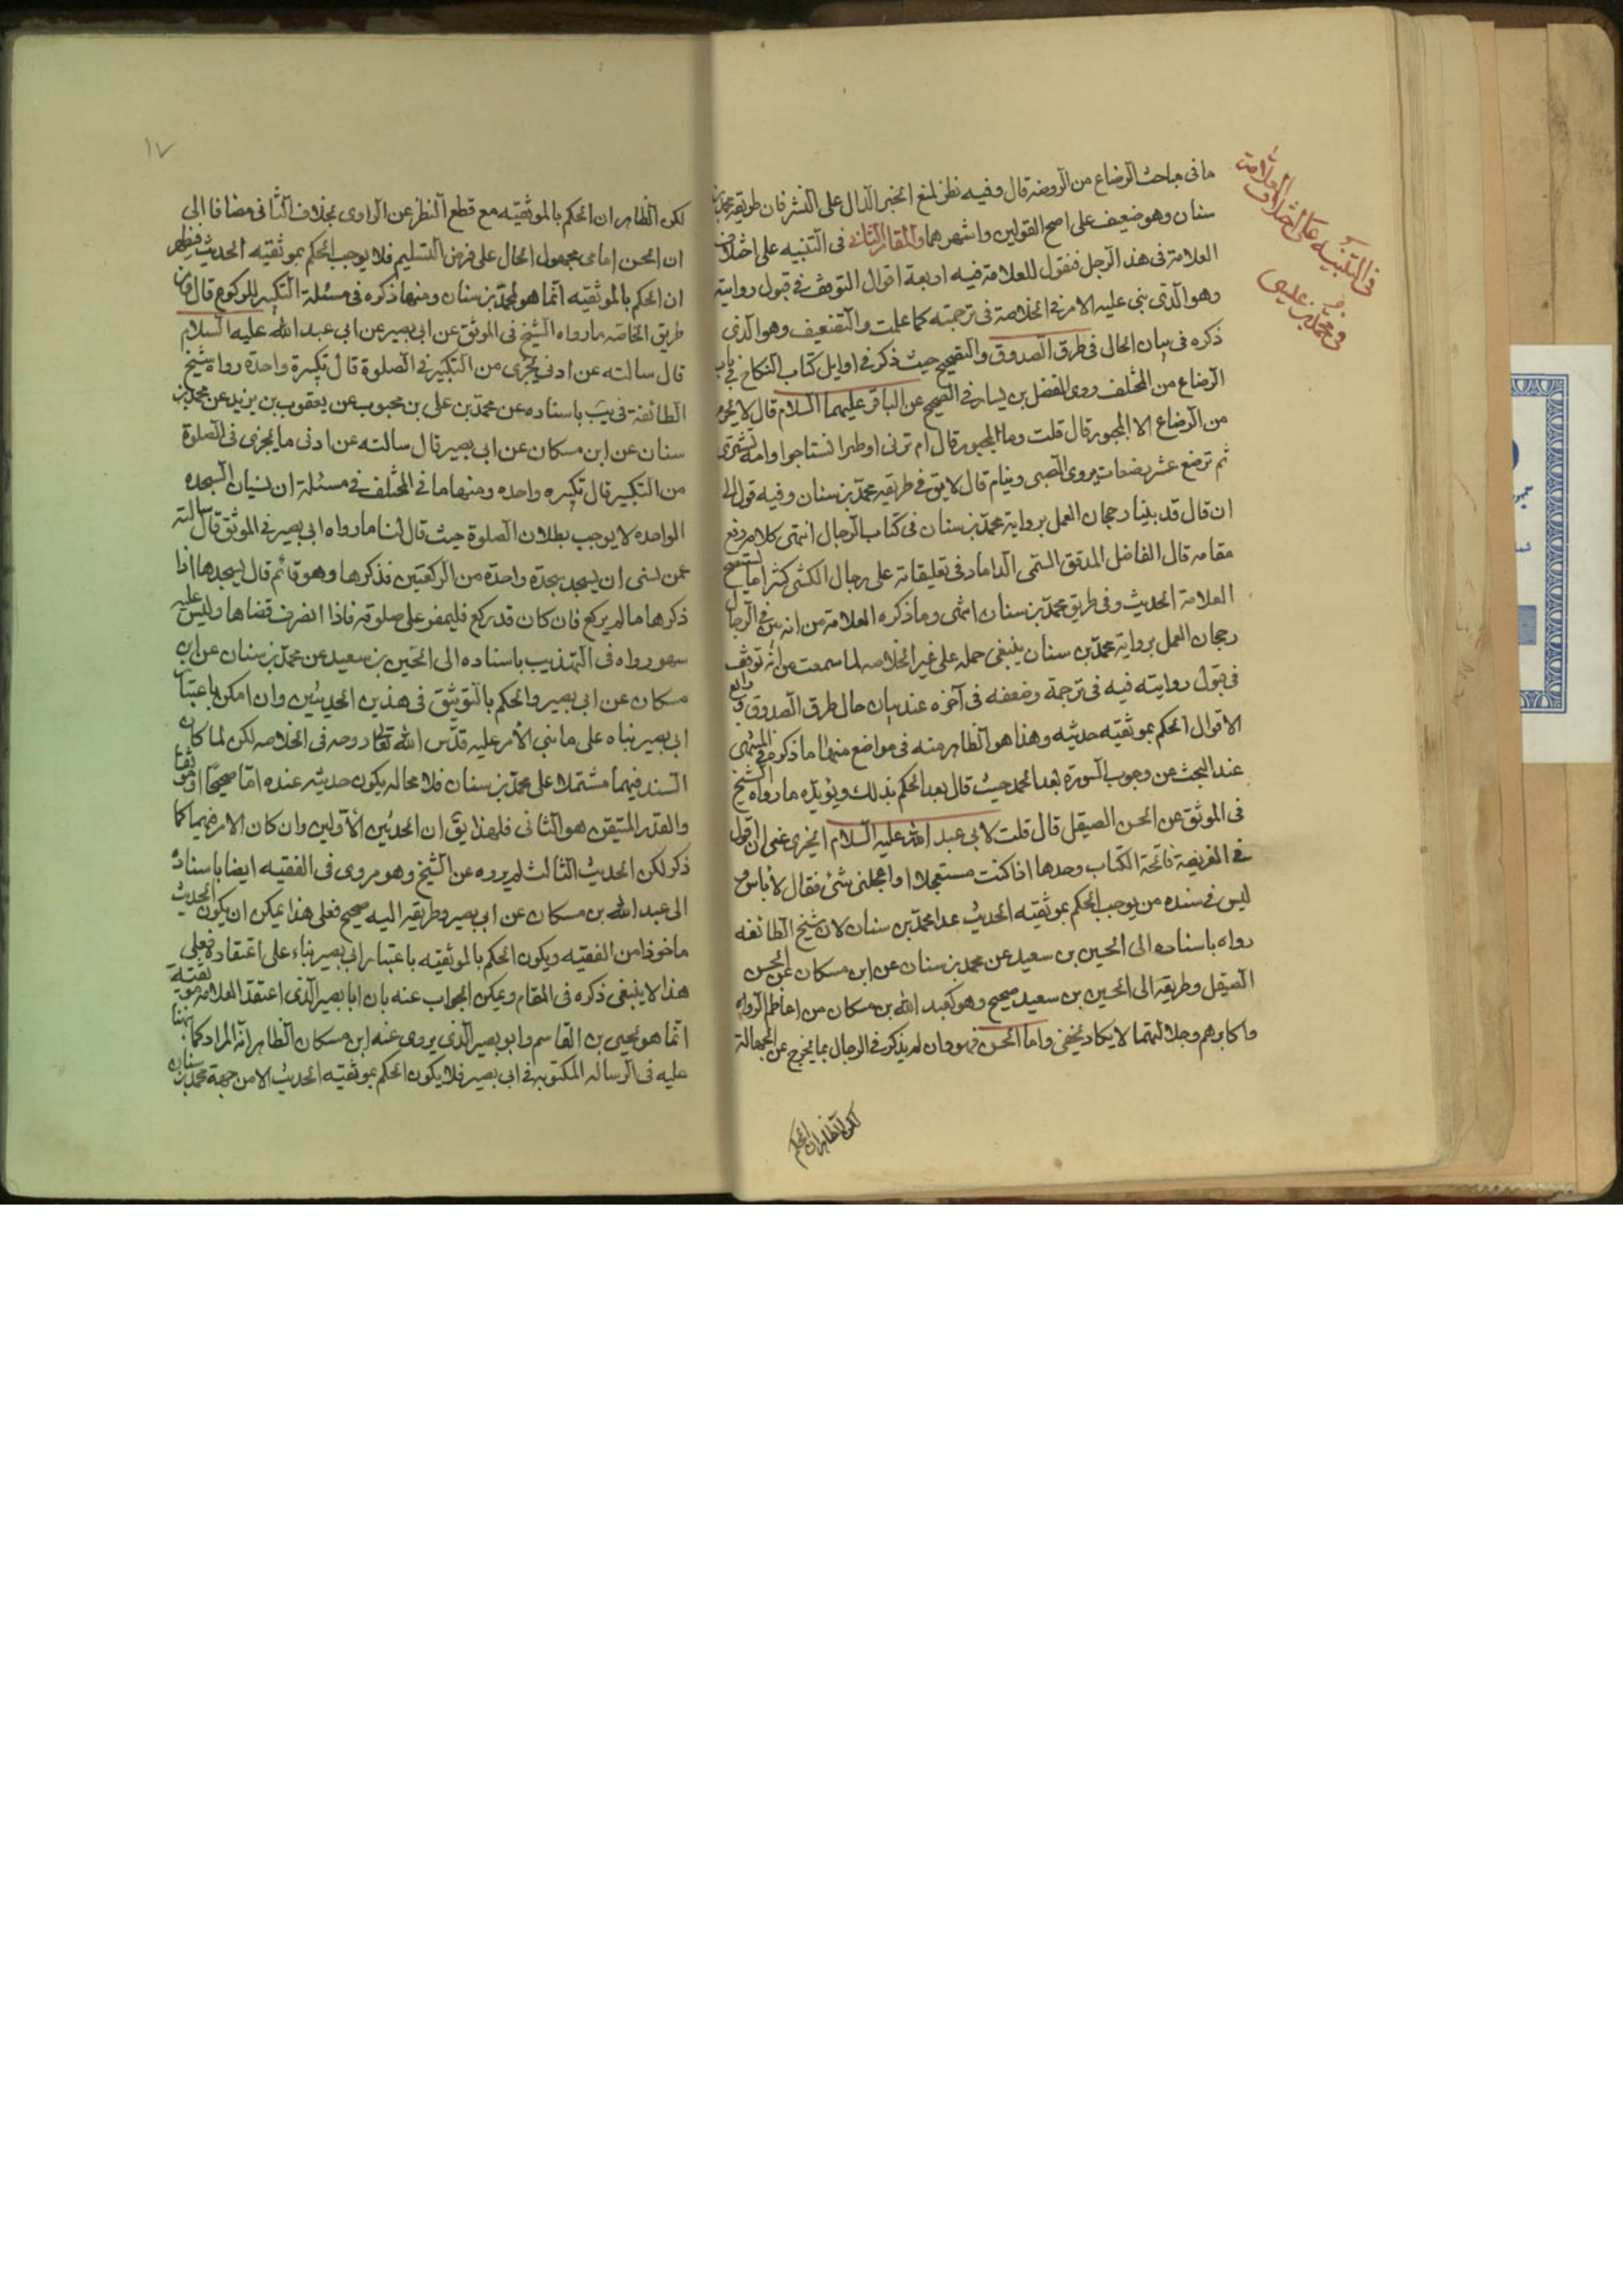 ما فى مباحث الرضاع من الروضة قال وفيه نظر لمنع الخبر الدال على النشر فان طريقه محمد بن
سنان وهو ضعيف على اصح القولين واشهرهما والمقام الثانى فى التنبيه على اختلاف
العلامة فى هذا الرجل فنقول للعلامة فيه اربعة اقوال التوقف فى قبول روايته
وهو الذى بنى عليه الامر فى الخلاصة فى ترجمته كما علمت والتضعيف وهو الذى
ذكره فى بيان الحال فى طرق الصدوق والتصحيح حيث ذكر فى اوايل كتاب النكاح فى باب
الرضاع من المختلف روى الفضل بن يسار فى الصحيح عن الباقر عليهما السلام قال لا يحرم
من الرضاع الا المجبور قال قلت وما المجبور قال ام تربى او ظئرا تستاجر او امة تشترى
ثم ترضع عشر رضعات يروى الصبى وينام قال لا يق فى طريقه محمد بن سنان وفيه قول الى
ان قال قد بينا رجحان العمل برواية محمد بن سنان فى كتاب الرجال انتهى كلامه رفع
مقامه قال الفاضل المدقق السمى الداماد فى تعليقاته على رجال الكشى كثيرا ما يستصح
العلامة الحديث وفى طريق محمد بن سنان انتهى وما ذكره العلامة من انه بين فى الرجال
رجحان العمل برواية محمد بن سنان ينبغى حمله على غير الخلاصه لما سمعت من انه توقف
فى قبول روايته فيه فى ترجمة وضعفه فى آخره عند بيان حال طرق الصدوق ورابع
الاقوال الحكم بموثقيه حديثه وهذا هو الظاهر منه فى مواضع منها ما ذكره فى المنتهى
عند البحث عن وجوب السورة بعد الحمد حيث قال بعد الحكم بذلك ويؤيده ما رواه الشيخ
فى الموثق عن الحسن الصيقل قال قلت لابى عبد الله عليه السلام ايجزى عنى ان اقول
فى الفريضة فاتحة الكتاب وحدها اذا كنت مستعجلا او اعجلنى شئ فقال لا باس و
ليس فى سنده من يوجب الحكم بموثقيه الحديث عدا محمد بن سنان لان شيخ الطائفه
رواه باسناده الى الحسين بن سعيد عن محمد بن سنان عن ابن مسكان عن الحسن
الصيقل وطريقه الى الحسين بن سعيد صحيح وهو كعبد الله بن مسكان من اعاظم الرواه
واكابرهم وجلالتهما لا يكاد يخفى واما الحسن فهو وان لم يذكر فى الرجال بما يخرج عن الجهالة
لكن الظاهر ان الحكم
فى التنبيه على اختلاف العلامة
فى محمد بن
١٧
لكن الظاهر ان الحكم بالموثقيه مع قطع النظر عن الراوى بخلاف الثانى مضافا الى
ان الحسن امامى مجهول الحال على فرض التسليم فلا يوجب الحكم بموثقيه الحديث فيظهر
ان الحكم بالموثقيه انما هو لمحمد بن سنان ومنها ذكره فى مسئلة التكبير للركوع قال ومن
طريق الخاصه ما رواه الشيخ فى الموثق عن ابى بصير عن ابى عبد الله عليه السلام
قال سالته عن ادنى يجزى من التكبير فى الصلوة قال تكبيرة واحدة رواه شيخ
الطائفة فى يب باسناده عن محمد بن على بن محبوب عن يعقوب بن يزيد عن محمد بن
سنان عن ابن مسكان عن ابى بصير قال سالته عن ادنى ما يجزى فى الصلوة
من التكبير قال تكبيره واحده ومنها ما فى المختلف فى مسئلة ان نسيان السجده
الواحده لا يوجب بطلان الصلوة حيث قال لنا ما رواه ابى بصير فى الموثق قال سالته
عمن نسى ان يسجد سجدة واحدة من الركعتين فذكرها وهو قائم قال يسجدها اذا
ذكرها ما لم يركع فان كان قد ركع فليمض على صلوته فاذا انصرف قضاها وليس عليه
سهو رواه فى التهذيب باسناده الى الحسين بن سعيد عن محمد بن سنان عن ابن
مسكان عن ابى بصير والحكم بالتوثيق فى هذين الحديثين وان امكن باعتبار
ابى بصير بناه على ما بنى الأمر عليه قدس الله تعالى روحه فى الخلاصه لكن لما كان
السند فيهما مشتملا على محمد بن سنان فلا محاله يكون حديثه عنده اما صحيحا او موثقا
والقدر المتيقن هو الثانى فلهذا يق ان الحديثين الأولين وان كان الامر فيهما كما
ذكر لكن الحديث الثالث لم يروه عن الشيخ وهو مروى فى الفقيه ايضا باسناده
الى عبد الله بن مسكان عن ابى بصير وطريقه اليه صحيح فعلى هذا يمكن ان يكون الحديث
ماخوذا من الفقيه ويكون الحكم بالموثقيه باعتبار ابى بصير بناء على اعتقاده فعلى
هذا لا ينبغى ذكره فى المقام ويمكن الجواب عنه بان ابا بصير الذى اعتقد العلامة موثقيته
انما هو يحيى بن القاسم وابو بصير الذى يروى عنه ابن مسكان الظاهر انه المراد كما نبهنا
عليه فى الرساله المكتوبه فى ابى بصير فلا يكون الحكم بموثقيه الحديث الا من جهة محمد بن سنان